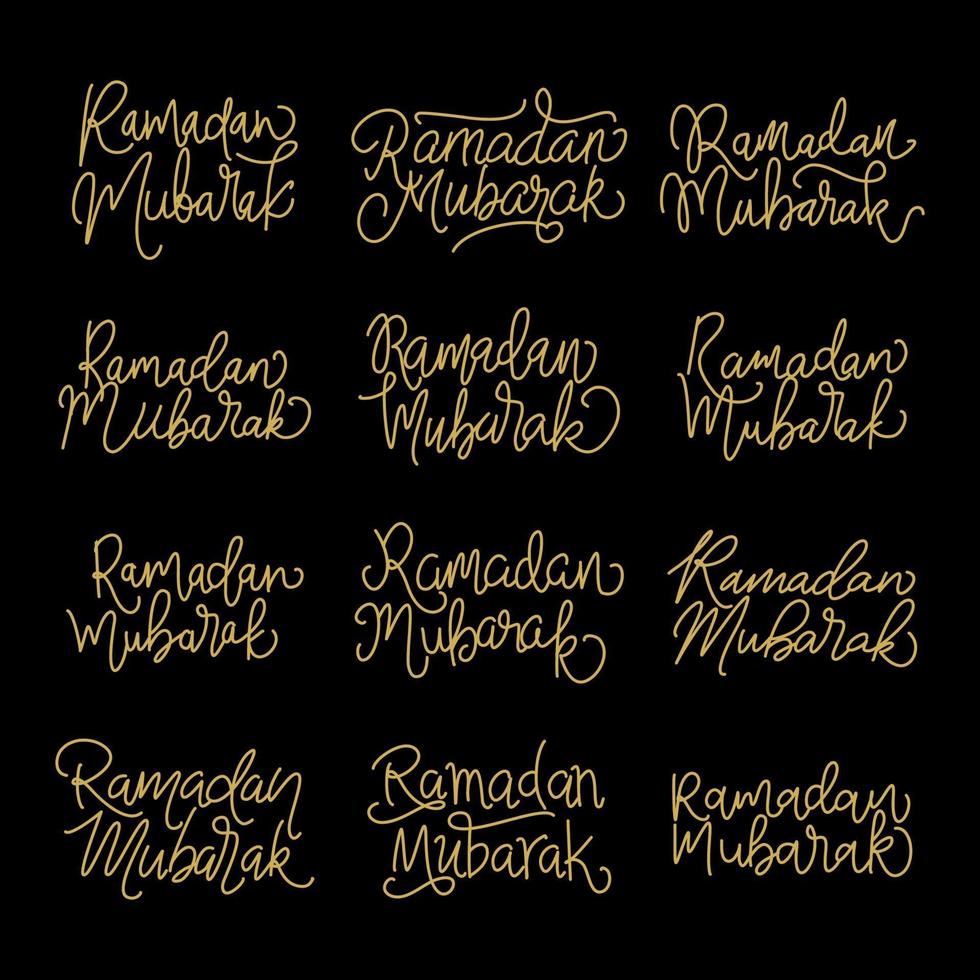 Ramadan
Mubarak
Ramadan
Mubarak
Ramadan
Mubarak
Ramadan
Mubarak
Ramadan
Mubarak
Ramadan
Mubarak
Ramadan
Mubarak
Ramadan
Mubarak
Ramadan
Mubarak
Ramadan
Mubarak
Ramadan
Mubarak
Ramadan
Mubarak